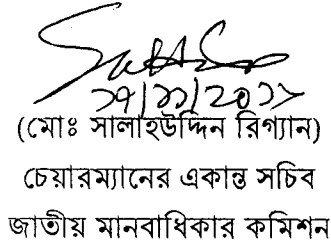 (মোঃ সালাহউদ্দিন রিগ্যান)
চেয়ারম্যানের একান্ত সচিব
জাতীয় মানবাধিকার কমিশন